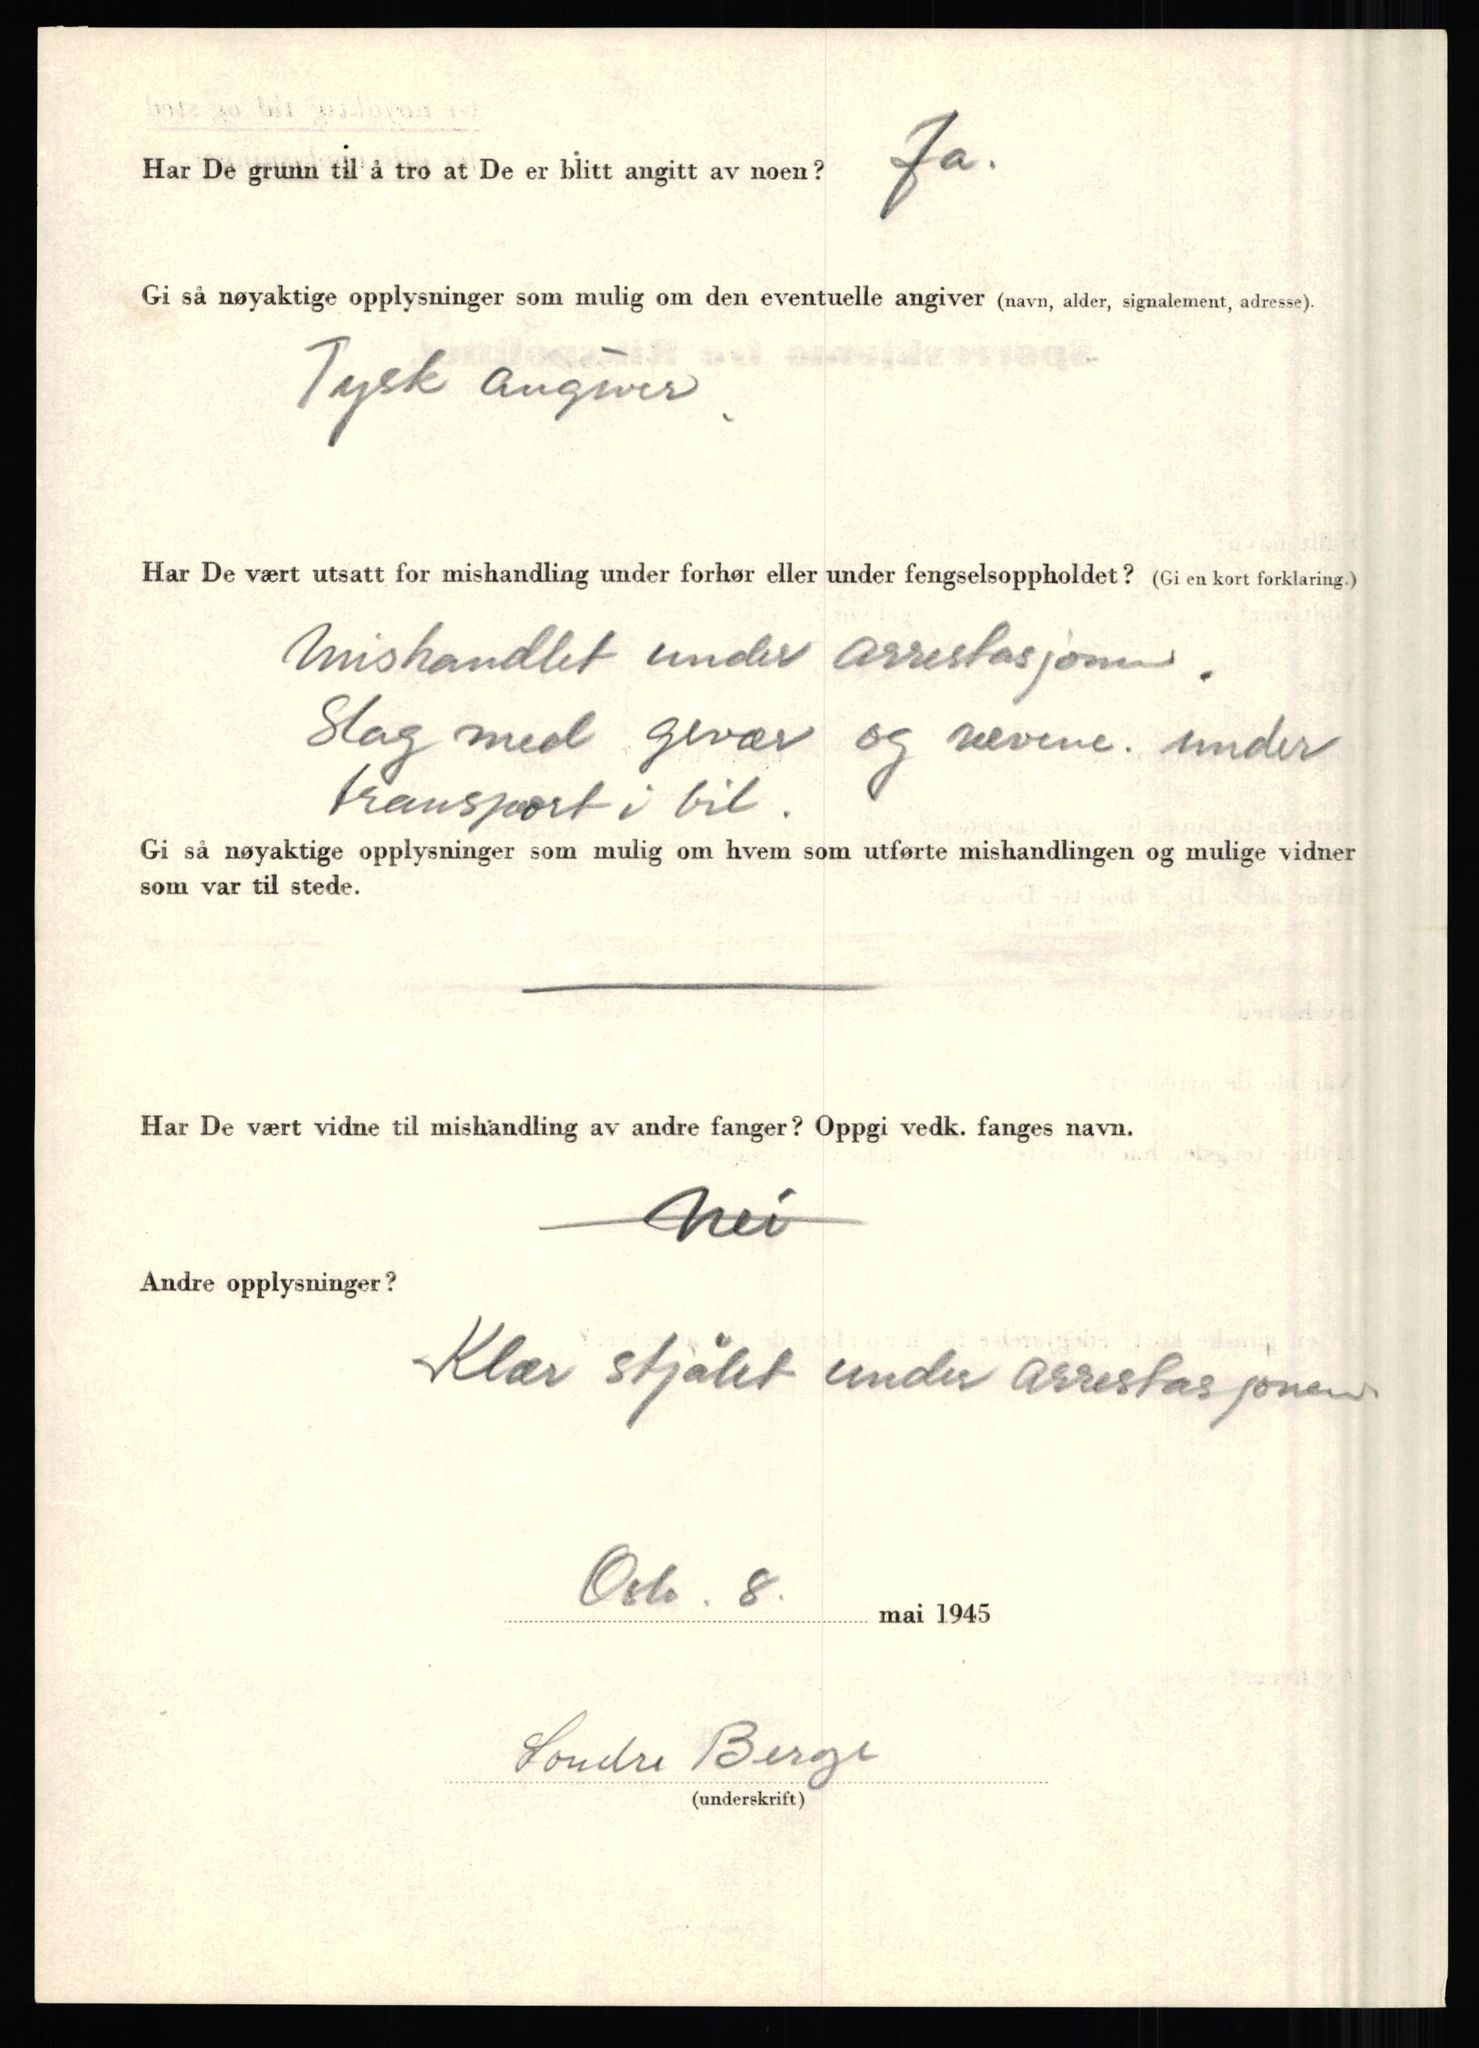 Har De grunn til å tro at De er blitt angitt av noen? Ja.
Gi så nøyaktige opplysninger som mulig om den eventuelle angiver (navn, alder, signalement, adresse).
Tysk angiver.
Har De vært utsatt for mishandling under forhør eller under fengselsoppholdet? (Gi en kort forklaring.)
Mishandlet under arrestasjonen.
Slag med gevær og nevene. under
transport i bil.
Gi så nøyaktige opplysninger som mulig om hvem som utførte mishandlingen og mulige vidner
som var til stede.
Har De vært vidne til mishandling av andre fanger? Oppgi vedk. fanges navn.
Nei
Andre opplysninger?
Klær stjålet under arrestasjonen.
Oslo. 8. mai 1945
Sondre Berge
(underskrift)